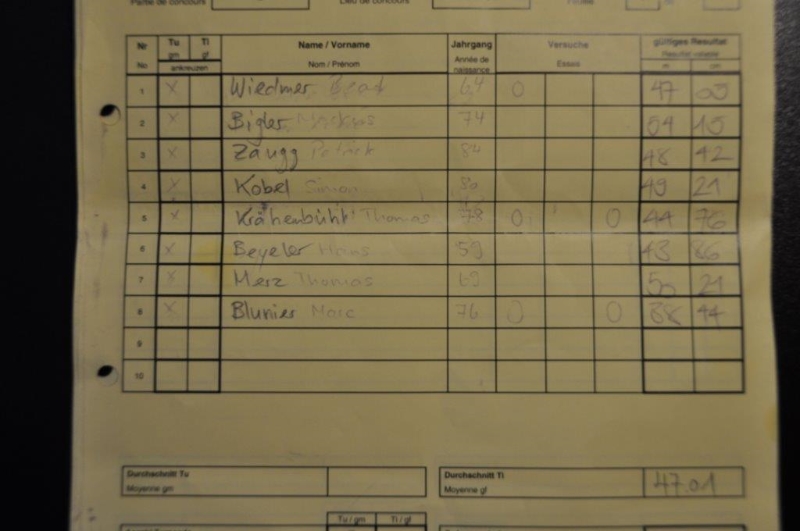 Partie de concours Lieu de concours
Nr Tu Ti Name / Vorname Jahrgang Versuche gültiges Resultat
gm gf Année de Resultat valable
No ankreuzen Nom / Prénom naissance Essais m cm
1 X Wiedmer Beat 64 O 47 00
2 X Bigler Markus 74 54 15
3 X Zaugg Patrick 84 48 42
4 X Kobel Simon 80 49 21
5 X Krähenbühl Thomas 78 O O 44 76
6 X Beyeler Hans 59 43 86
7 X Merz Thomas 69 50 21
8 X Blunier Marc 76 O O 38 44
9
10
Durchschnitt Tu Durchschnitt Ti
Moyenne gm Moyenne gf 47.01
Tu / gm Ti / gf